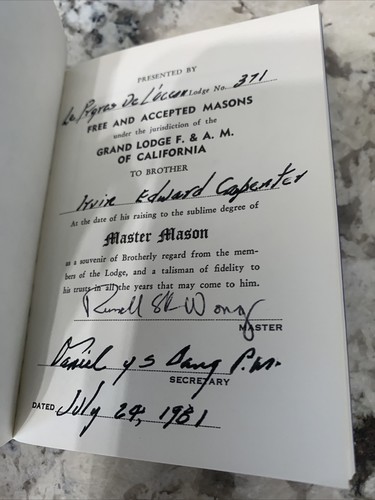 PRESENTED BY
La Parfaite Union Lodge No. 371
FREE AND ACCEPTED MASONS
under the jurisdiction of the
GRAND LODGE F. & A. M.
OF CALIFORNIA
TO BROTHER
Edward Carpenter
At the date of his raising to the sublime degree of
Master Mason
as a souvenir of Brotherly regard from the mem-
bers of the Lodge, and a talisman of fidelity to
his trusts in all the years that may come to him.
Wong
MASTER
Daniel y s Dang P.M.
SECRETARY
DATED July 24, 1981